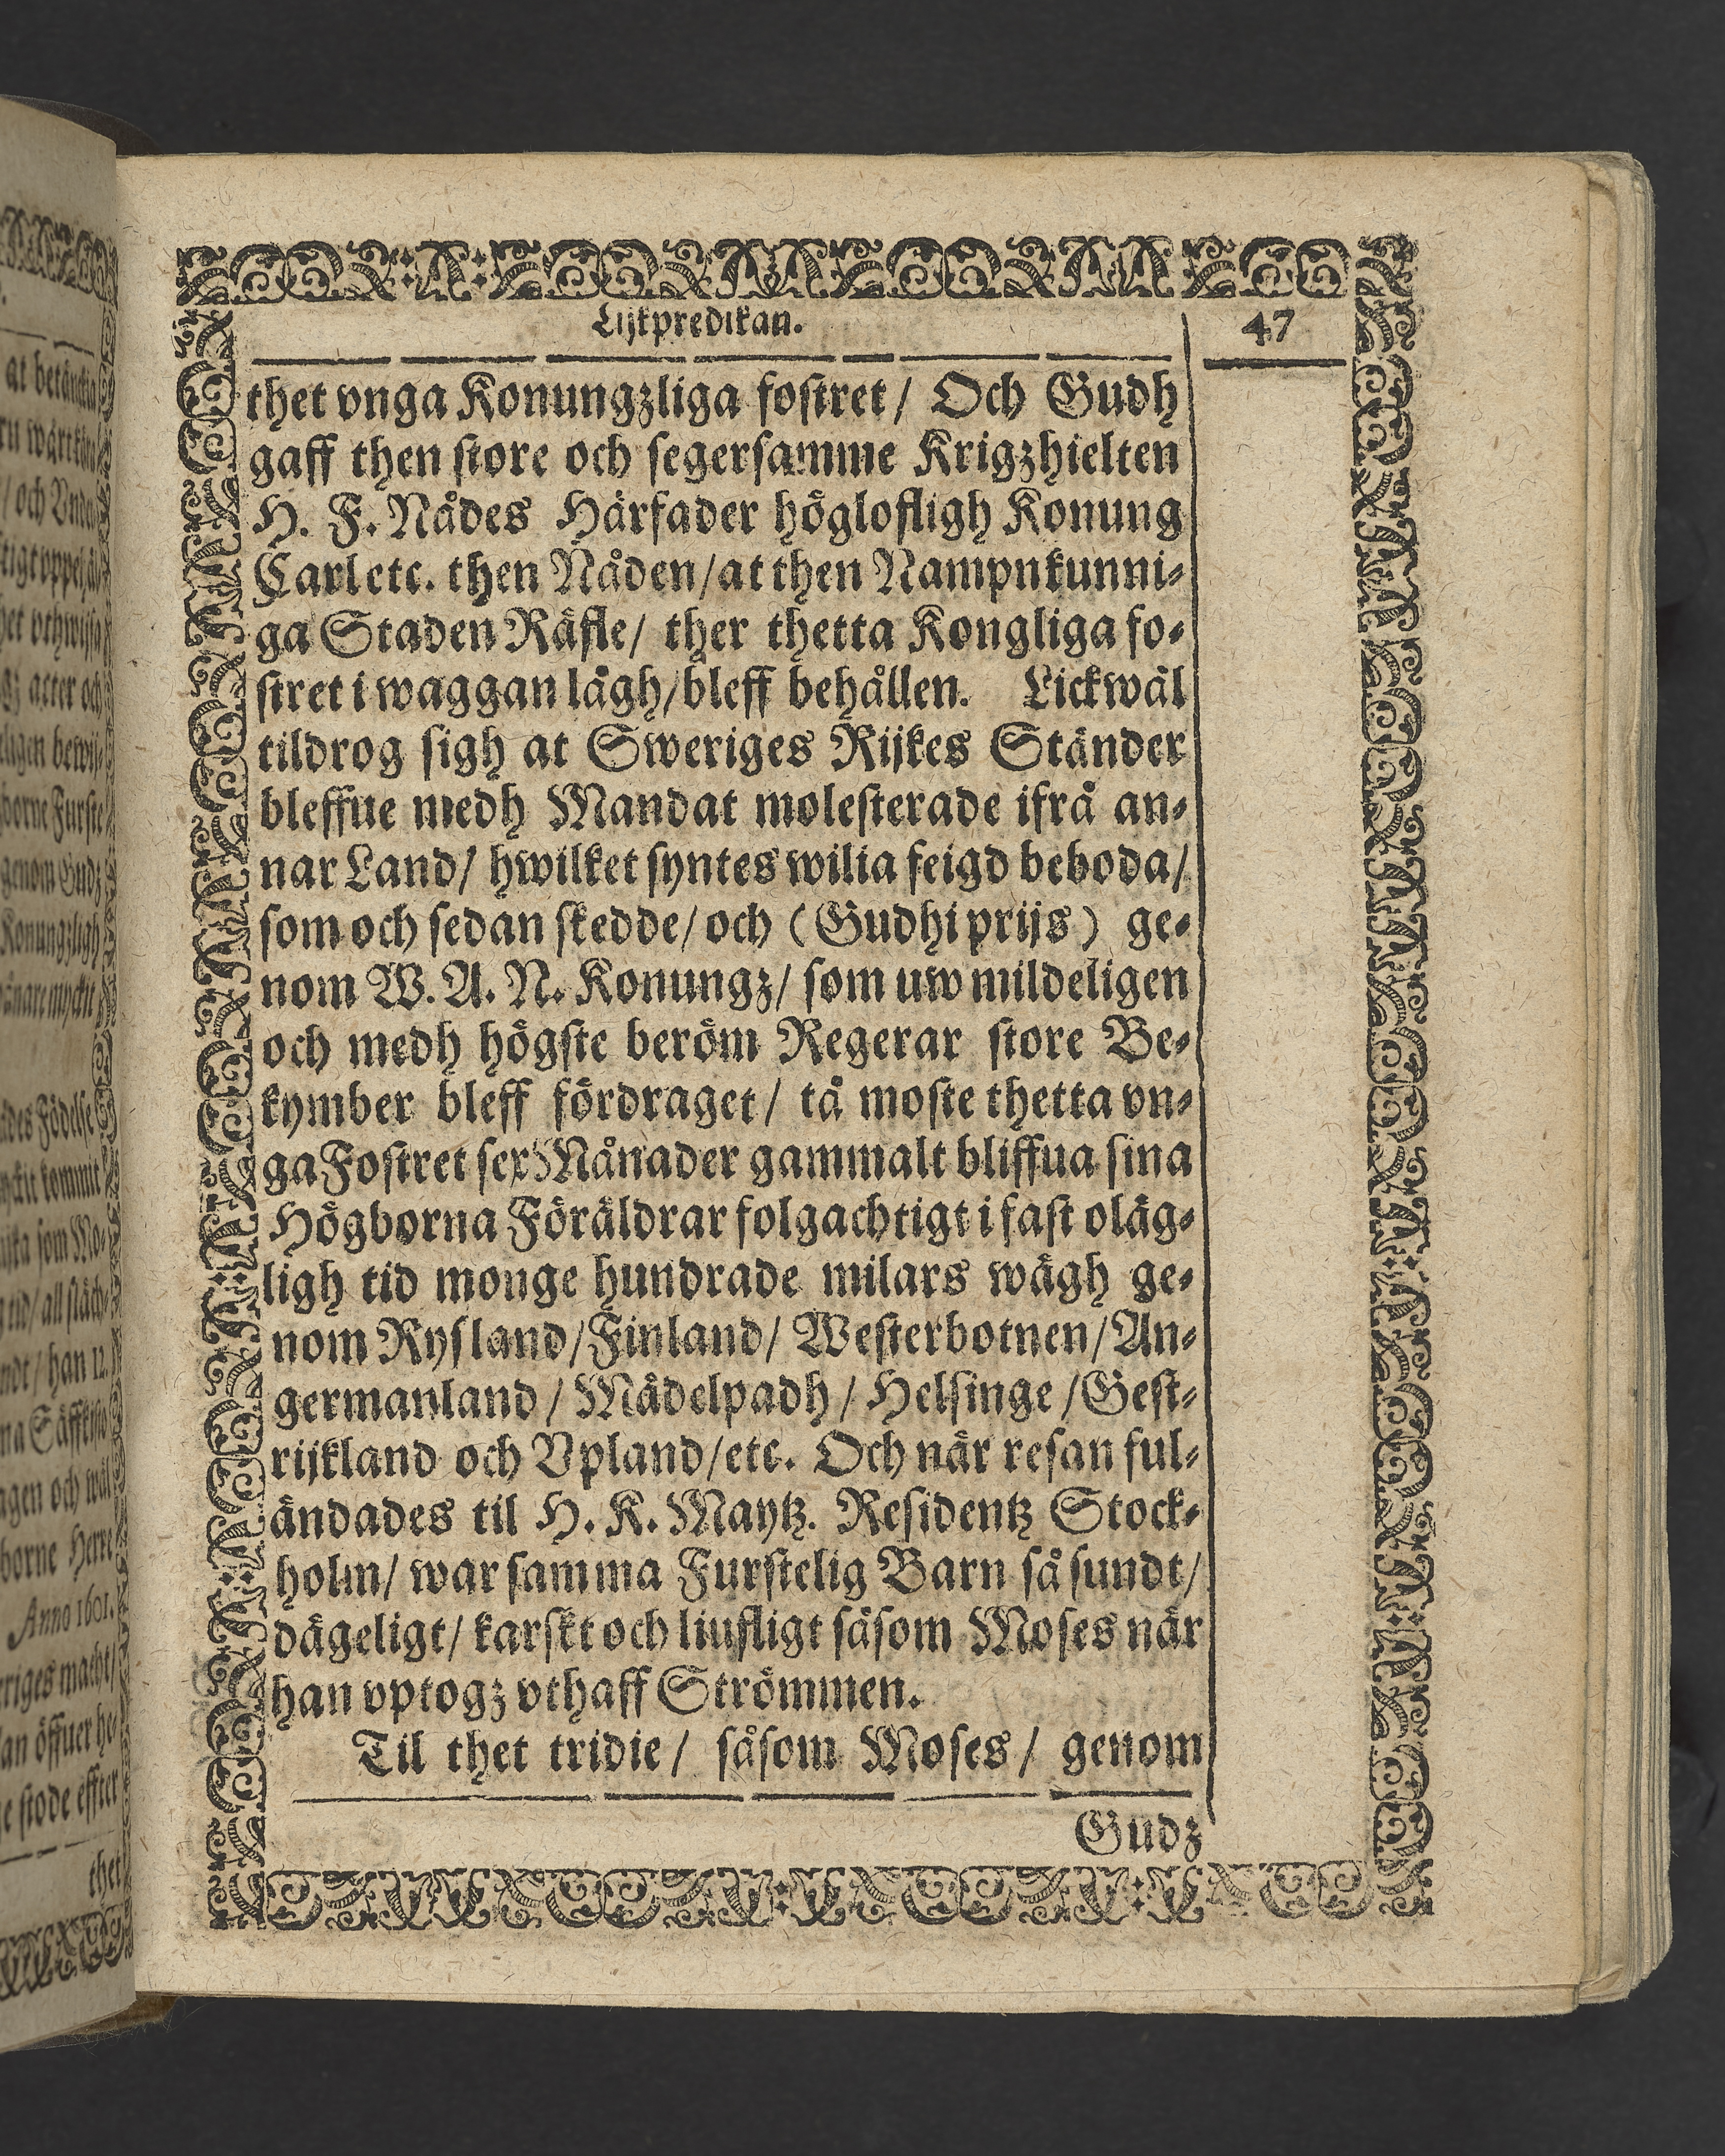 Lijkpredikan. 47
thet vnga Konungzliga fostret / Och Gudh
gaff then store och segersamme Krigzhielten
H. F. Nådes Härfader höglofligh Konung
Carl etc. then Nåden / at then Nampnkunni-
ga Staden Räfle / ther thetta Kongliga fo-
stret i waggan lågh / bleff behållen. Lickwäl
tildrog sigh at Sweriges Rijkes Ständer
bleffue medh Mandat molesterade ifrå an-
nar Land / hwilket syntes wilia feigd beboda /
som och sedan skedde / och (Gudhi prijs) ge-
nom W. A. N. Konungz / som uw mildeligen
och medh högste beröm Regerar store Be-
kymber bleff fördraget / tå moste thetta vn-
ga Fostret sex Månader gammalt bliffua sina
Högborna Föräldrar folgachtigt i fast oläg-
ligh tid monge hundrade milars wägh ge-
nom Rysland / Finland / Westerbotnen / An-
germanland / Mädelpadh / Helsinge / Gest-
rijkland och Vpland / etc. Och när resan ful-
ändades til H. K. Maytz. Residentz Stock-
holm / war samma Furstelig Barn så sundt /
dägeligt / karskt och liufligt såsom Moses när
han vptogz vthaff Strömmen.
Til thet tridie / såsom Moses / genom
Gudz
at betänckia
/ och Vnde
acter och
borne Furste
genom Gudz
Konungzligh
kommit
som Mo-
/ han 12.
agen och wäl
borne Herre
Anno 1601.
riges macht /
an öffuer he
e stode effter
thet